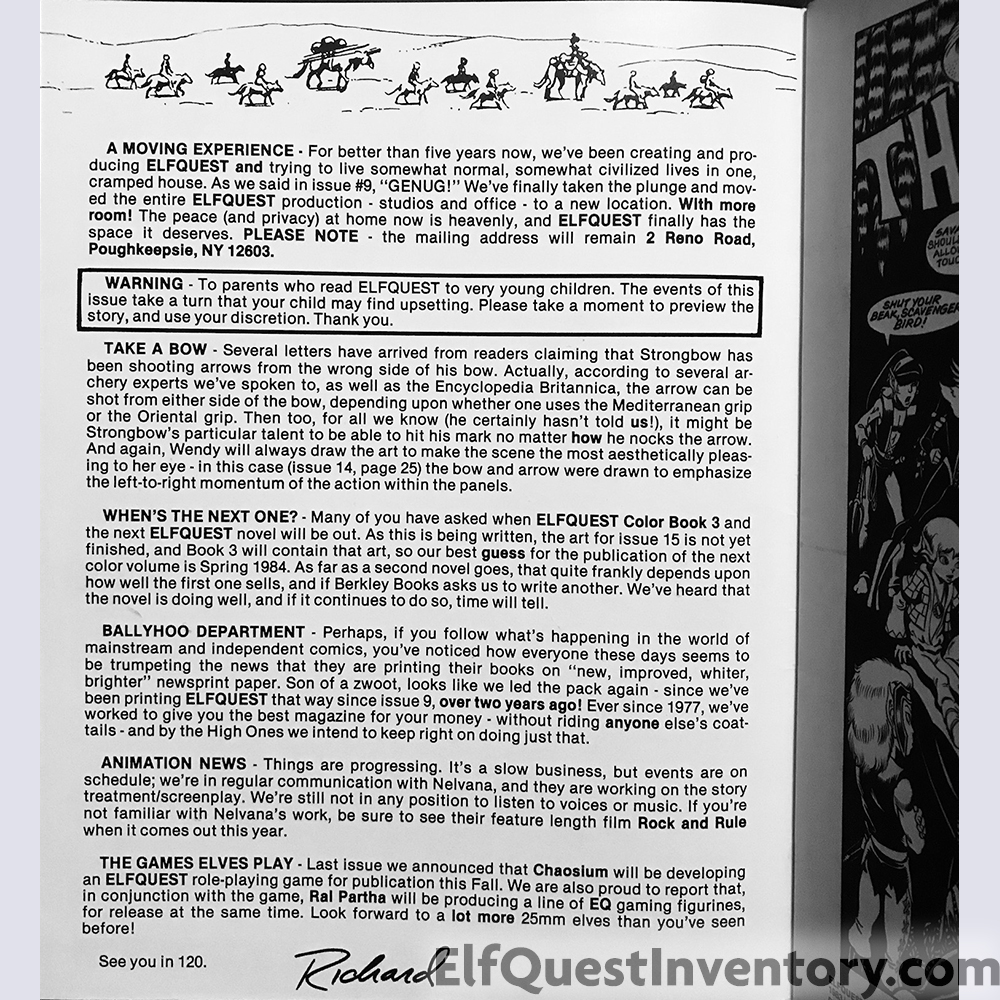 A MOVING EXPERIENCE - For better than five years now, we've been creating and pro-
ducing ELFQUEST and trying to live somewhat normal, somewhat civilized lives in one,
cramped house. As we said in issue #9, "GENUG!" We've finally taken the plunge and mov-
ed the entire ELFQUEST production - studios and office - to a new location. With more
room! The peace (and privacy) at home now is heavenly, and ELFQUEST finally has the
space it deserves. PLEASE NOTE - the mailing address will remain 2 Reno Road,
Poughkeepsie, NY 12603.
WARNING - To parents who read ELFQUEST to very young children. The events of this
issue take a turn that your child may find upsetting. Please take a moment to preview the
story, and use your discretion. Thank you.
TAKE A BOW - Several letters have arrived from readers claiming that Strongbow has
been shooting arrows from the wrong side of his bow. Actually, according to several ar-
chery experts we've spoken to, as well as the Encyclopedia Britannica, the arrow can be
shot from either side of the bow, depending upon whether one uses the Mediterranean grip
or the Oriental grip. Then too, for all we know (he certainly hasn't told us!), it might be
Strongbow's particular talent to be able to hit his mark no matter how he nocks the arrow.
And again, Wendy will always draw the art to make the scene the most aesthetically pleas-
ing to her eye - in this case (issue 14, page 25) the bow and arrow were drawn to emphasize
the left-to-right momentum of the action within the panels.
WHEN'S THE NEXT ONE? - Many of you have asked when ELFQUEST Color Book 3 and
the next ELFQUEST novel will be out. As this is being written, the art for issue 15 is not yet
finished, and Book 3 will contain that art, so our best guess for the publication of the next
color volume is Spring 1984. As far as a second novel goes, that quite frankly depends upon
how well the first one sells, and if Berkley Books asks us to write another. We've heard that
the novel is doing well, and if it continues to do so, time will tell.
BALLYHOO DEPARTMENT - Perhaps, if you follow what's happening in the world of
mainstream and independent comics, you've noticed how everyone these days seems to
be trumpeting the news that they are printing their books on "new, improved, whiter,
brighter" newsprint paper. Son of a zwoot, looks like we led the pack again - since we've
been printing ELFQUEST that way since issue 9, over two years ago! Ever since 1977, we've
worked to give you the best magazine for your money - without riding anyone else's coat-
tails - and by the High Ones we intend to keep right on doing just that.
ANIMATION NEWS - Things are progressing. It's a slow business, but events are on
schedule; we're in regular communication with Nelvana, and they are working on the story
treatment/screenplay. We're still not in any position to listen to voices or music. If you're
not familiar with Nelvana's work, be sure to see their feature length film Rock and Rule
when it comes out this year.
THE GAMES ELVES PLAY - Last issue we announced that Chaosium will be developing
an ELFQUEST role-playing game for publication this Fall. We are also proud to report that,
in conjunction with the game, Ral Partha will be producing a line of EQ gaming figurines,
for release at the same time. Look forward to a lot more 25mm elves than you've seen
before!
See you in 120.
Richard
ElfQuestInventory.com
TH
SHUT YOUR
BEAK, SCAVENGER
BIRD!